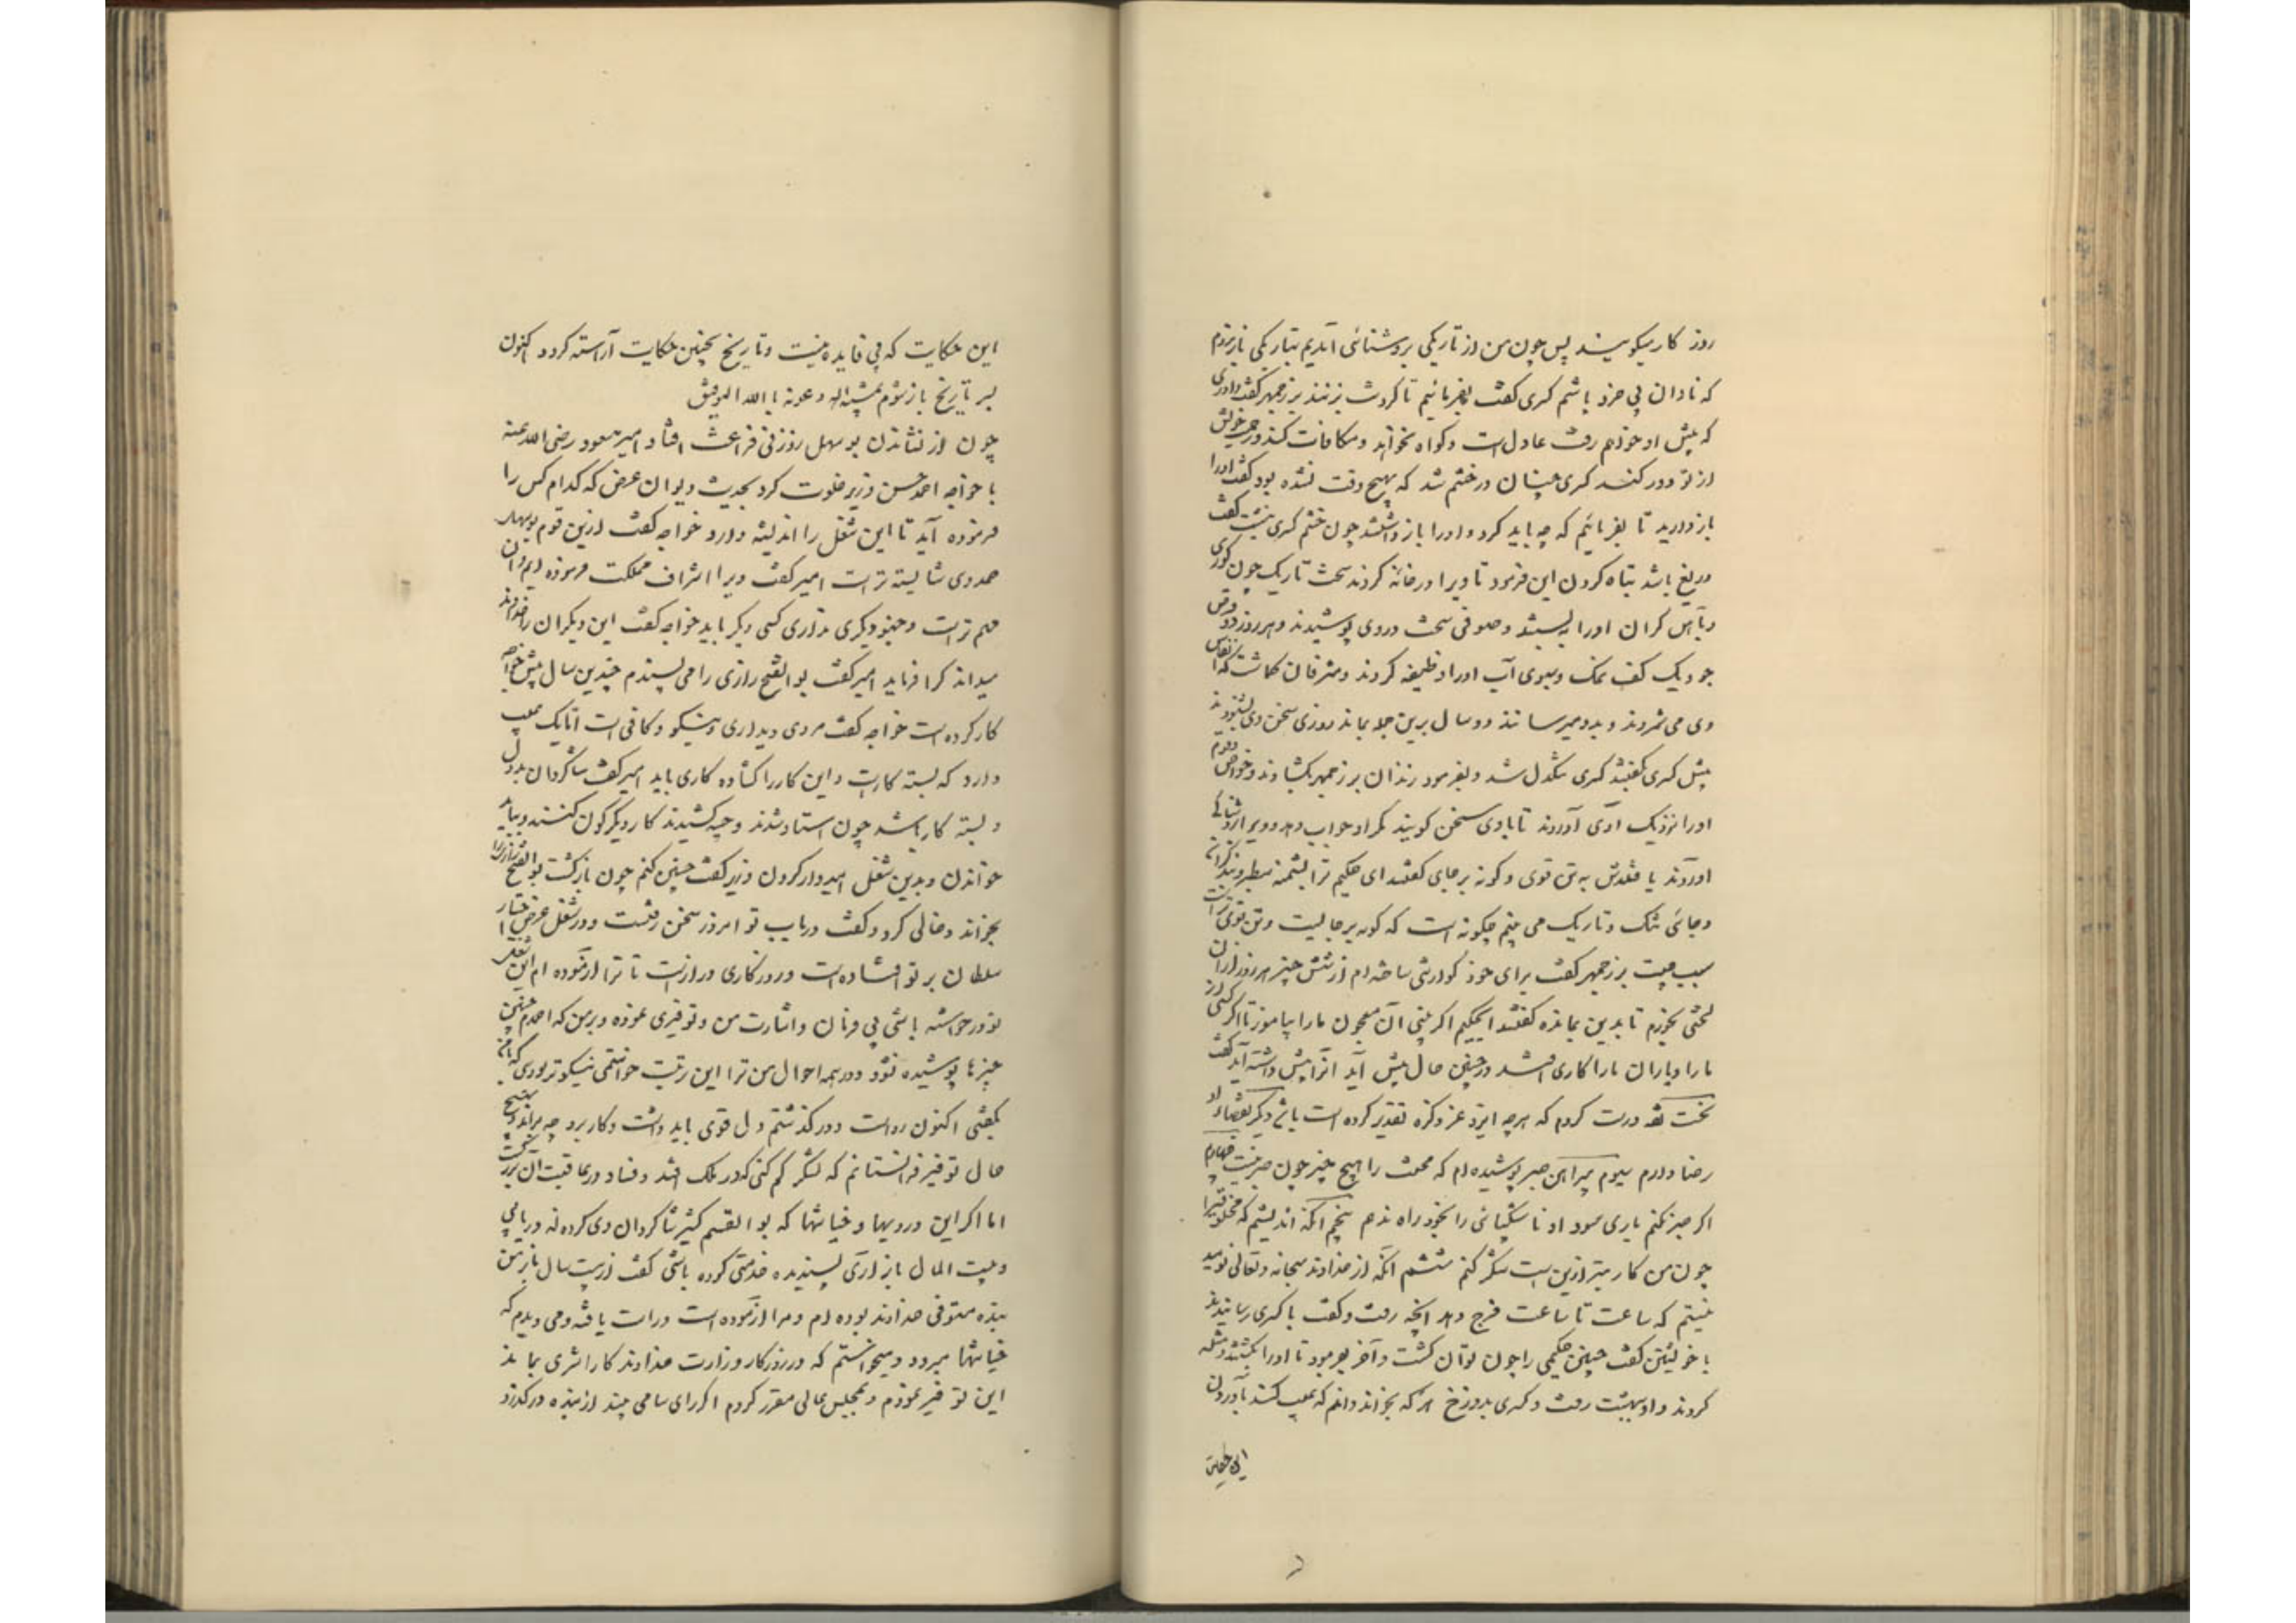 روز کار میکوشند پس چون من از تاریکی بروشنائی آمدیم بتاریکی باز نروم
که نادان بی خرد باشم کسری گفت بفرمائیم تا گردنت بزنند بزرجمهر گفت داوری
که پیش او خواهم رفت عادل است و گواه نخواهد و مکافات کند و رحمت خویش
از تو دور کند کسری چنان در خشم شد که بهیچ وقت نشده بود گفت او را
باز دارید تا بفرمائیم که چه باید کرد و او را باز داشتند چون خشم کسری بنشست گفت
دریغ باشد تباه کردن این فرمود تا ویرا در خانه کردند سخت تاریک چون گوری
و بآهن گران او را ببستند و صوفی سخت در وی پوشیدند و هر روز دو قرص
جو و یک کف نمک و سبوی آب او را وظیفه کردند و مشرفان گماشت که انفاس
وی می شمردند و بدو میرسانند دو سال برین جمله بماند روزی سخن وی نشنودند
پیش کسری گفتند کسری تنگدل شد و بفرمود زندان بزرجمهر بگشادند و خواص و قوم
او را نزدیک او آوردند تا با وی سخن گویند مگر او جواب دهد و ویرا بروشنائی
آوردند یافتندش به تن قوی و گونه بر جای گفتند ای حکیم ترا پشمینه سطبر و بند گران
و جائی تنگ و تاریک می بینم چگونه است که گونه بر جا یست و تن قوی تر است
سبب چیست بزرجمهر گفت برای خود گوارشی ساخته ام از شش چیز هر روز از آن
لختی بخورم تا بدین بمانده گفتند ای حکیم اگر بینی آن معجون ما را بیاموز تا اگر کسی از
ما را و یاران ما را کاری افتد و چنین حال پیش آید آنرا پیش داشته آید گفت
نخست ثقه درست کردم که هر چه ایزد عز ذکره تقدیر کرده است باشد دیگر بقضاء او
رضا دارم سیوم پیراهن صبر پوشیده ام که محنت را هیچ چیز چون صبر نیست چهارم
اگر صبر نکنم باری سودا و ناشکیبائی را بخود راه ندهم پنجم آنکه اندیشم که مخلوقی را
چون من کار بتر ازین است شکر کنم ششم آنکه از خداوند سبحانه و تعالی نومید
نیستم که ساعت تا ساعت فرج دهد آنچه رفت و گفت با کسری رسانیدند
با خویشتن گفت چنین حکیمی را چون توان کشت و آخر بفرمود تا او را بکشتند و مثله
کردند و او بهشت رفت و کسری بدوزخ هر که بخواند دانم که عیب نکند بآوردن
این حکایت
این حکایت که بی فایده نیست و تاریخ بچنین حکایت آراسته گردد اکنون
بسر تاریخ باز شوم بمشیة الله و عونه بالله التوفیق
چون از نشاندن بوسهل زوزنی فراغت افتاد امیر مسعود رضی الله عنه
با خواجه احمد حسن وزیر خلوت کرد بحدیث دیوان عرض که کدام کس را
فرموده آید تا این شغل را اندیشه دارد خواجه گفت ازین قوم بوسهل
حمدوی شایسته تر است امیر گفت ویرا اشراف مملکت فرموده ایم و آن
مهم تر است و چنو دیگری نداری کسی دیگر باید خواجه گفت این دیگران را خداوند
میداند کرا فرماید امیر گفت بو الفتح رازی را می پسندم چندین سال پیش خواجه
کار کرده است خواجه گفت مردی دیداری و نیکو و کافی است اما یک عیب
دارد که بسته کار است و این کار را گشاده کاری باید امیر گفت شاگردان بددل
و بسته کار باشند چون استاد شدند و وجیه گشتند کار دیگرگون کنند و بباید
خواندن و بدین شغل امیدوار کردن وزیر گفت چنین کنم چون بازگشت بو الفتح رازی را
بخواند و خالی کرد و گفت در باب تو امروز سخن رفت و در شغل عرض اختیار
سلطان بر تو افتاده است و روزگاری دراز است تا ترا آزموده ام این شغل
تو درخواسته باشی بی فرمان و اشارت من و توفیری نموده و بر من که احمدم چنین
چیزها پوشیده نشود و در همه احوال من ترا این رتبت خواستمی نیکوتر بودی که با من
بگفتی اکنون رواست و در گذشتم دل قوی باید داشت و کار برد چه براند و بهیچ
حال توفیر فرانستانم که لشکر کم کنی که در ملک افتد و فساد در عاقبت آن بزرگست
اما اگر این دزدیها و خیانتها که بو القسم کثیر شاگردان وی کرده اند دریابی
و بیت المال باز آری پسندیده خدمتی کرده باشی گفت از بیست سال باز من
بنده مستوفی خداوند بوده ام و مرا آزموده است و راست یافته و می دیدم که
خیانتها میرود و میخواستم که در روزگار وزارت خداوند کارا اثری بماند
این توفیر نمودم و بمجلس عالی مقرر کردم اگر رای سامی بیند از بنده در گذرد